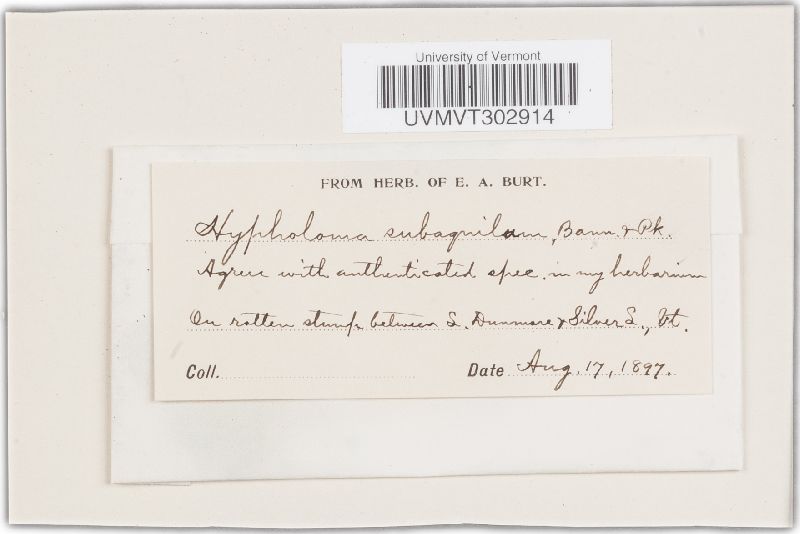 University of Vermont
UVMVT302914
FROM HERB. OF E. A. BURT.
Hypholoma subaquilum, Bann. & Pk.
Agrees with authenticated spec. in my herbarium
On rotten stump between L. Dunmore & Silver L., Vt.
Coll.
Date Aug. 17, 1897.